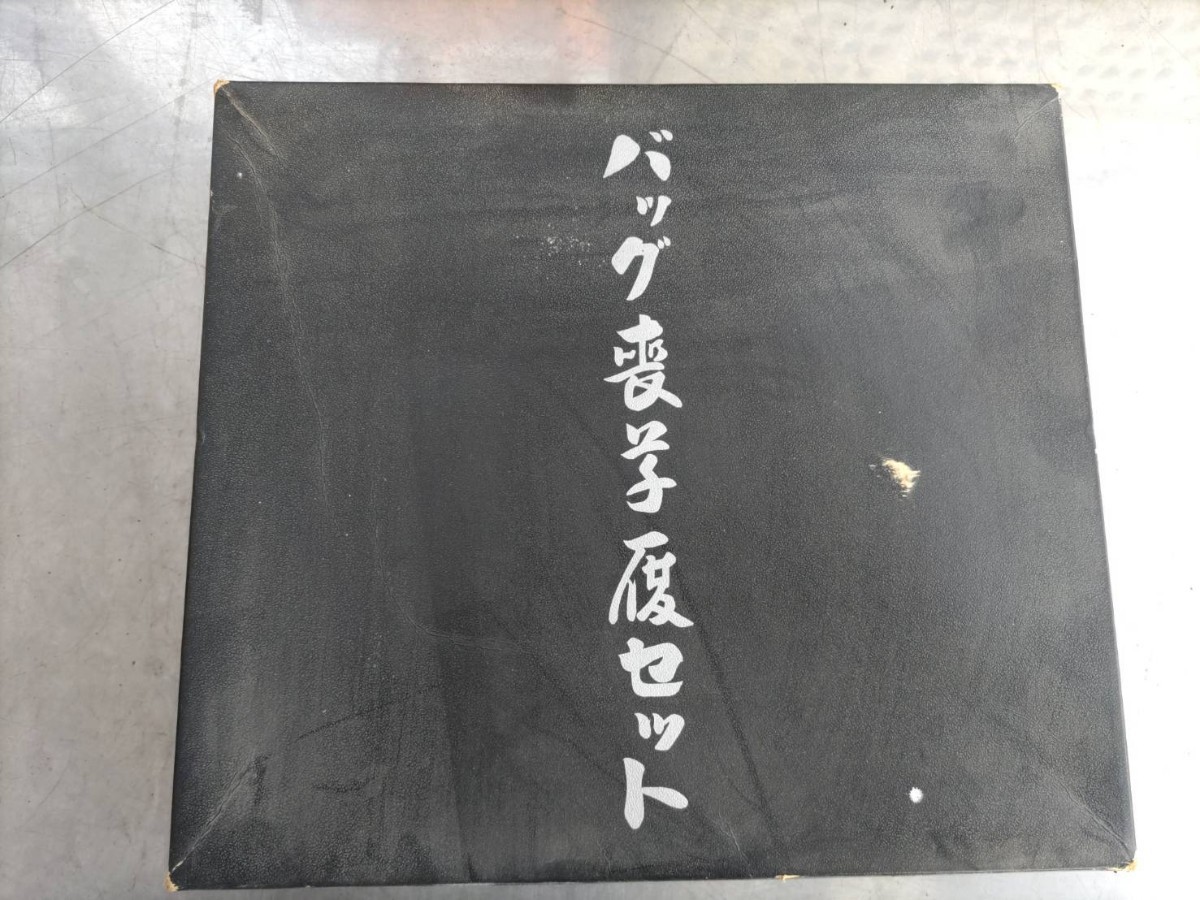 バッグ喪草履セット